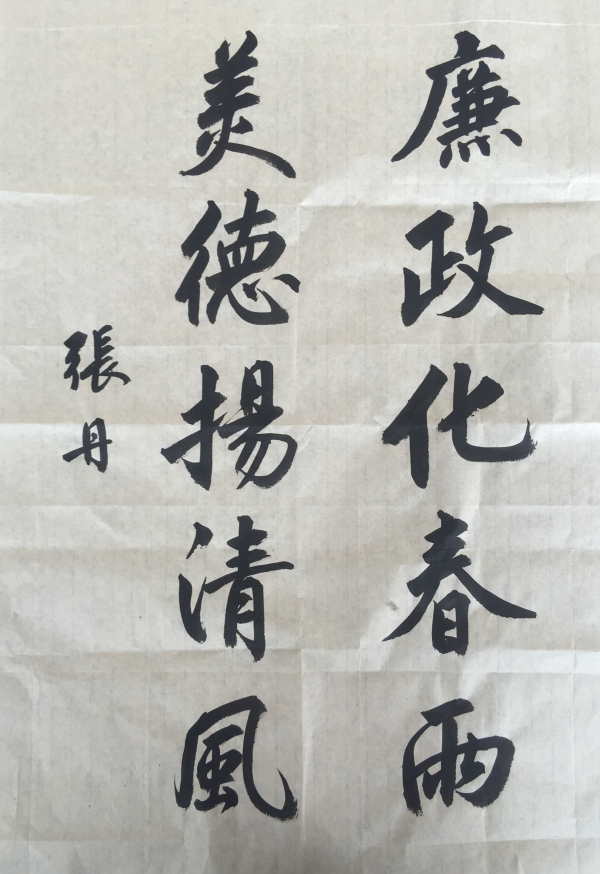 廉政化春雨
美德揚清風
張丹